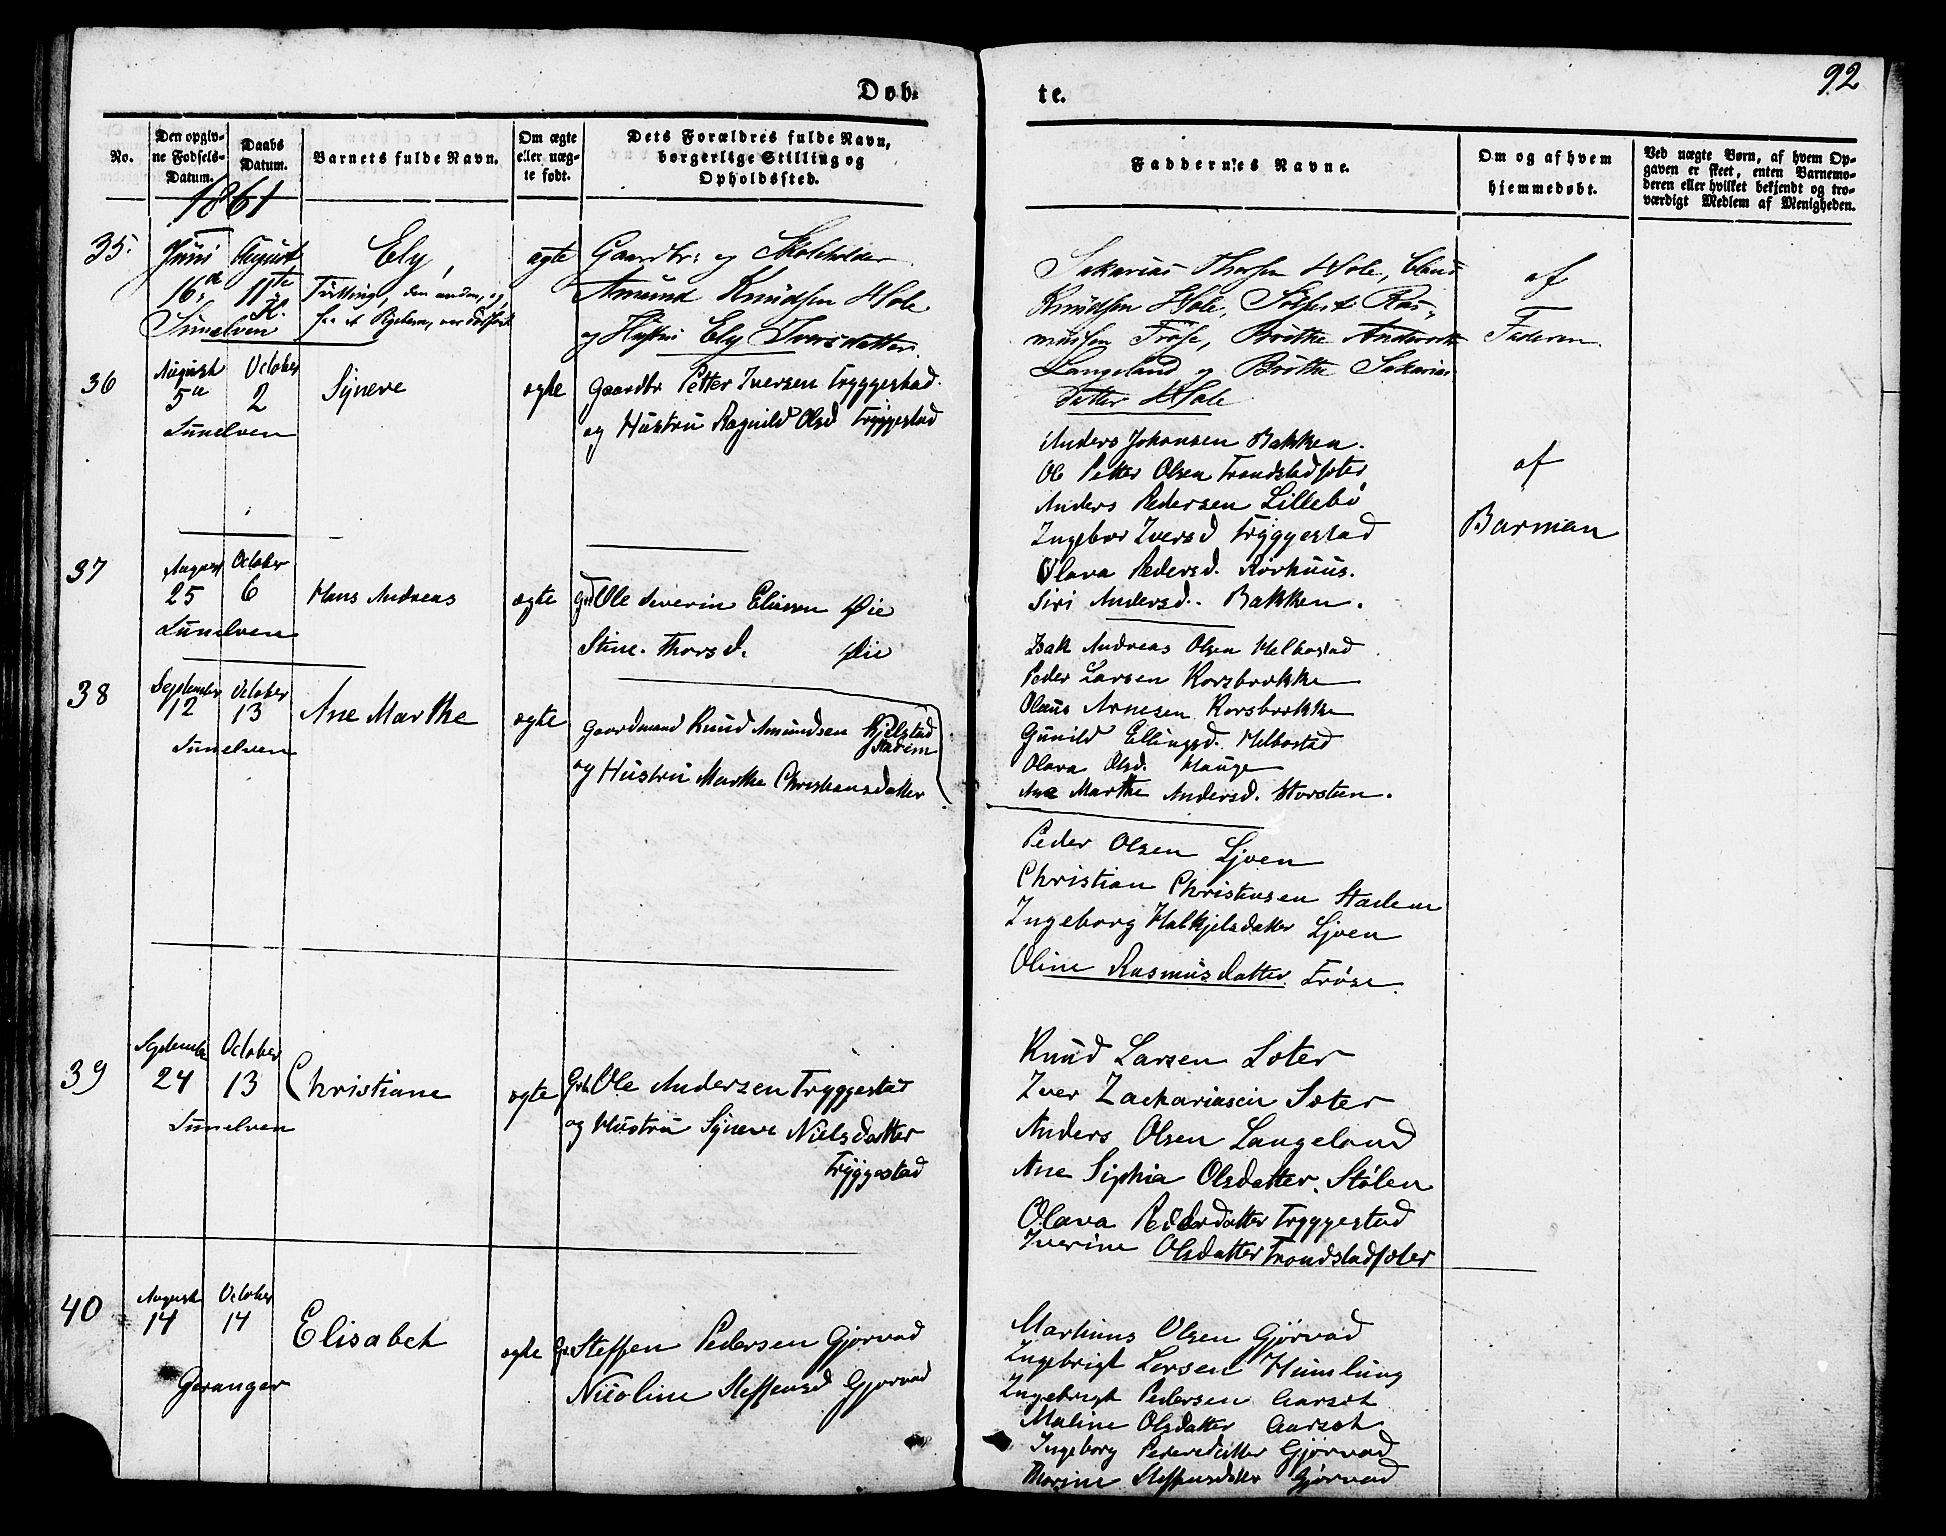 92
Døb-
te.
No.
Den opgiv-
ne Fødsels-
Datum.
Daabs
Datum.
Barnets fulde Navn.
Om ægte
eller uæg-
te født.
Dets Forældres fulde Navn,
borgerlige Stilling og
Opholdssted.
Faddernes Navne.
Om og af hvem
hjemmedøbt.
Ved uægte Børn, af hvem Op-
gaven er skeet, enten Barnemo-
deren eller hvilket bekjendt og tro-
værdigt Medlem af Menigheden.
1861
35.
Juni
16d
Sunelven
August
11te
K.
Ely,
Tvilling, den anden, og
ægte
Gaardbr: og Skoleholder
Amund Knudsen Hole
og Hustru Ely Iversdatter.
Sakarias Thorsen Hole,
Knudsen Hole, Ras-
mussen Frøse, Brøthe Andersdtr
Langeland og Brøthe Sakarias
datter Hole
af
Faderen
36
August
5d
Sunelven
October
2
Syneve
ægte
Gaardbr Petter Iversen Tryggestad.
og Hustru Ragnild Olsd Tryggestad
Anders Johansen Bakken.
Ole Petter Olsen Trondstadsæter
Anders Pedersen Lillebø
Ingebor Iversd Tryggestad
Olava Pedersd. Rørhuus.
Siri Andersd. Bakken.
af
Barman
37
August
25
Sunelven
October
6
Hans Andreas
ægte
Grd Ole Severin Eliesen Øie
Stine Thorsd. Øie
Isak Andreas Olsen Melbostad
Peder Larsen Korsbrekke
Olaus Arnesen Korsbrekke
Gunild Ellingsd. Melbostad
Olava Olsd. Hauge
Ane Marthe Andersd. Horsteen.
38
September
12
Sunelven
October
13
Ane Marthe
ægte
Gaardmand Knud Amundsen Kjelstad
Stadem
og Hustru Marthe Christiansdatter
Peder Olsen Ljøen
Christian Christensen Stadem
Ingeborg Halkjelsdatter Ljøen
Oline Rasmusdatter Frøse.
39
September
24
Sunelven
October
13
Christiane
ægte
Grb. Ole Andersen Tryggestad
og Hustru Syneve Nielsdatter
Tryggestad
Knud Larsen Sæter
Iver Zachariasen Sæter
Anders Olsen Langeland
Ane Siphia Olsdatter Stølen
Olava Pedersdatter Tryggestad
Iverine Olsdatter Trondstadsæter
40
August
14
Geranger
October
14
Elisabet
ægte
Steffen Pedersen Gjørvad
Nicoline Steffensd Gjørvad
Martinus Olsen Gjørvad
Ingebrigt Larsen Humlung
Ingebrigt Pedersen Aarset
Maline Olsdatter Aarset
Ingeborg Pedersdatter Gjørvad
Thorine Steffensdatter Gjørvad